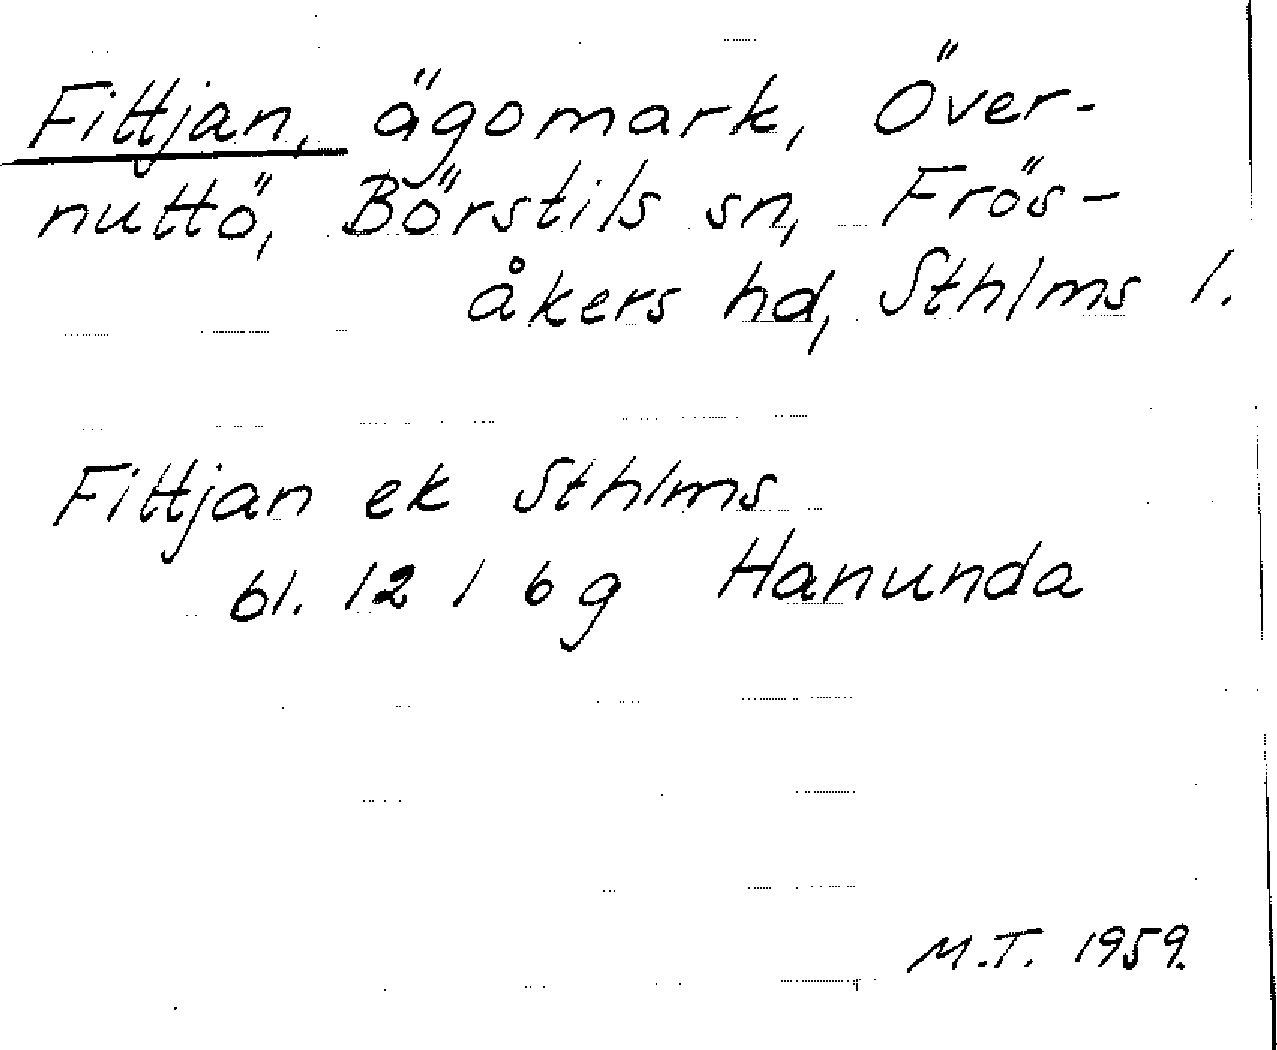 Fittjan, ägomark, Över-
nuttö, Börstils sn, Frös-
åkers hd, Sthlms l.
Fittjan ek Sthlms
bl. 12 I 6 g Hanunda
M.T. 1959.